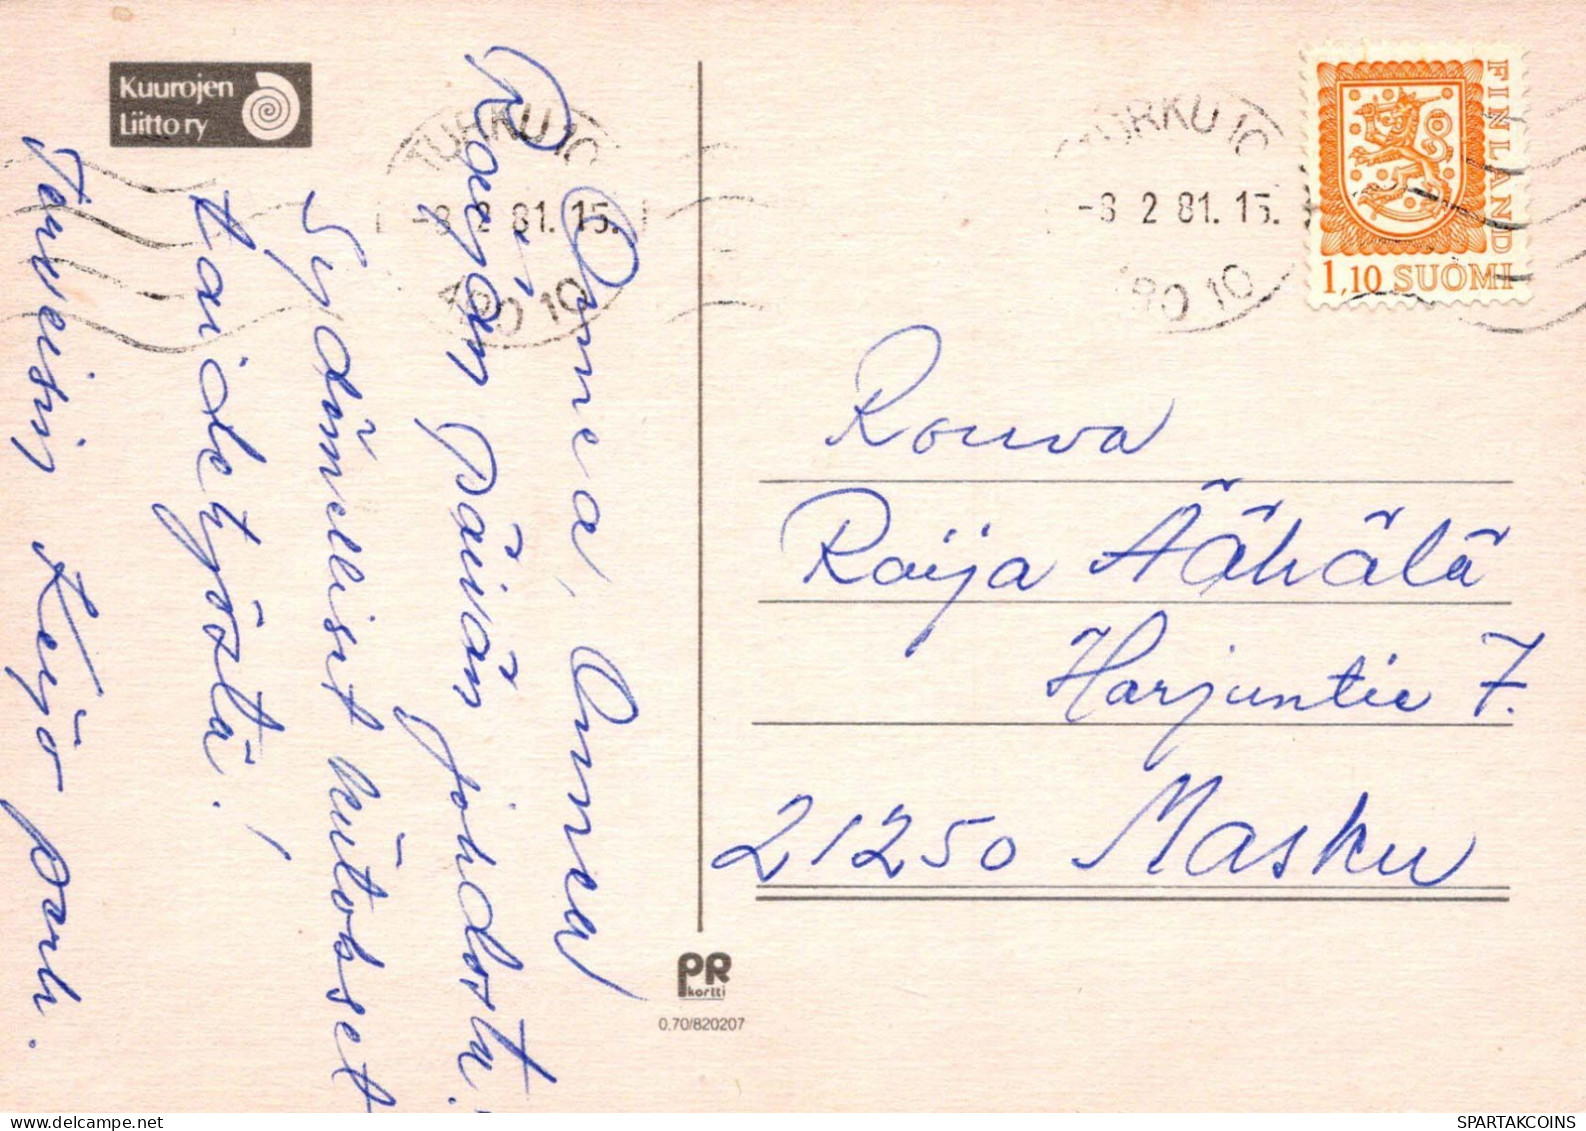 Kuurojen
Liitto ry
TURKU 10
-8 2 81. 15.
ÅBO 10
TURKU 10
-8 2 81. 15.
ÅBO 10
FINLAND
1,10 SUOMI
Onnea, Onnea
Raijan päivän johdosta!
Sydämelliset kiitokset
taidetyöstä!
Terveisin Keijo
Rouva
Raija Äähälä
Harjuntie 7.
21250 Masku
PR
kortti
0.70/820207
SPARTAKCOINS